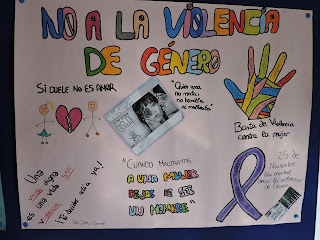 NO A LA VIOLENCIA
DE GÉNERO
SI DUELE NO ES AMOR
"Quien ama
no mata,
no humilla
ni maltrata"
Basta de Violencia
contra la mujer
"CUANDO MALTRATAS
A UNA MUJER
DEJAS DE SER
UN HOMBRE"
25 de
Noviembre
Día
contra la violencia
de Género
Una
vida
es una vida
violencia